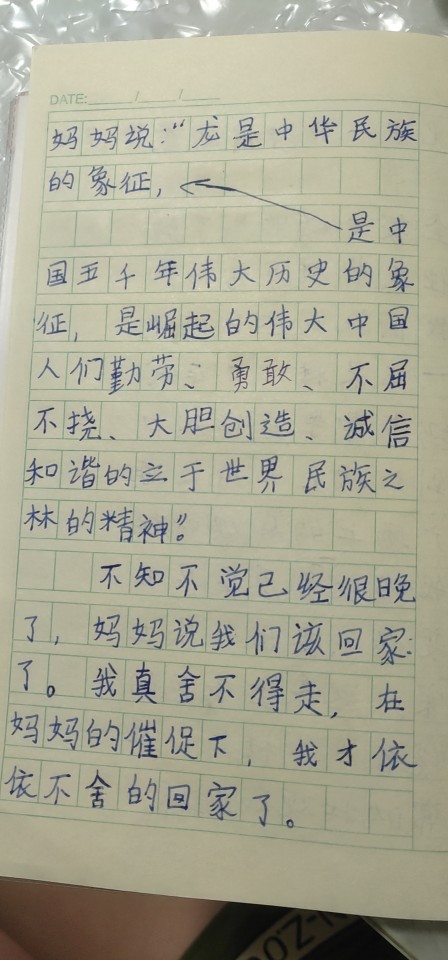 DATE: / /
妈妈说:“龙是中华民族
的象征,
是中
国五千年伟大历史的象
征,是崛起的伟大中国
人们勤劳、勇敢、不屈
不挠、大胆创造、诚信
和谐的立于世界民族之
林的精神”。
不知不觉已经很晚
了,妈妈说我们该回家
了。我真舍不得走,在
妈妈的催促下,我才依
依不舍的回家了。